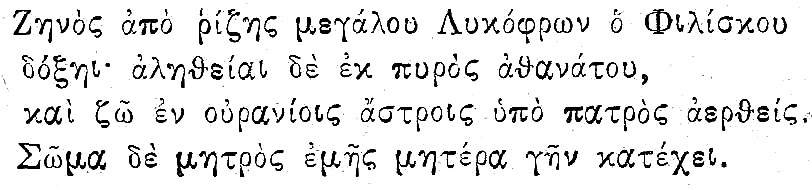 Ζηνὸς ἀπὸ ῥίζης μεγάλου Λυκόφρων ὁ Φιλίσκου
δόξηι· ἀληθείαι δὲ ἐκ πυρὸς ἀθανάτου,
καὶ ζῶ ἐν οὐρανίοις ἄστροις ὑπὸ πατρὸς ἀερθείς.
Σῶμα δὲ μητρὸς ἐμῆς μητέρα γῆν κατέχει.